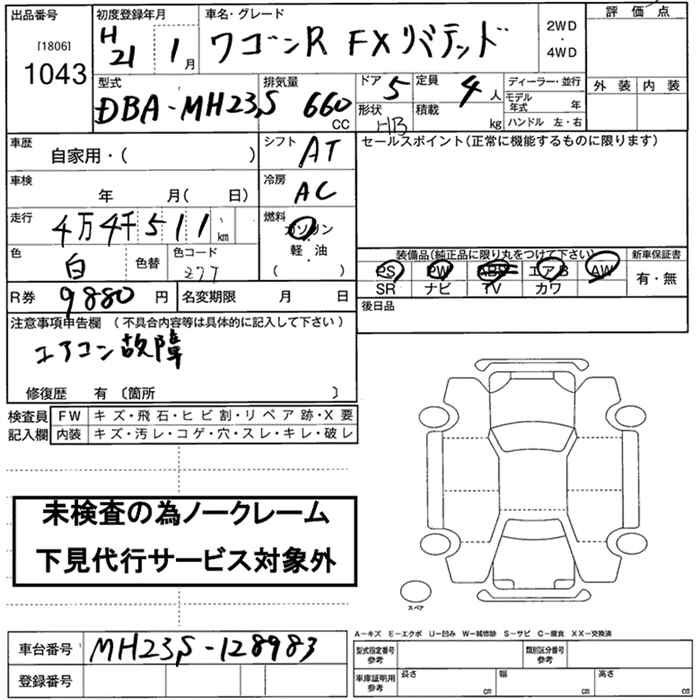 出品番号 初度登録年月 車名・グレード 評価点
[1806] H21 1月 ワゴンR FXリミテッド 2WD・4WD
1043
型式 排気量 ドア 5 定員 4人 ディーラー・並行 外装 内装
DBA-MH23S 660cc 形状 HB 積載 kg モデル年式 年
ハンドル 左・右
車歴 自家用・( ) シフト AT セールスポイント(正常に機能するものに限ります)
車検 年 月( 日) 冷房 AC
走行 4万4千511km 燃料 ガソリン
軽・油
( )
色 白 色替 色コード 装備品(純正品に限り丸をつけて下さい) 新車保証書
PS PW ABS エアB AW 有・無
SR ナビ TV カワ
R券 9880円 名変期限 月 日 後日品
注意事項申告欄(不具合内容等は具体的に記入して下さい)
エアコン故障
修復歴 有〔箇所 〕
検査員 FW キズ・飛石・ヒビ割・リペア跡・X要
記入欄 内装 キズ・汚レ・コゲ・穴・スレ・キレ・破レ
未検査の為ノークレーム
下見代行サービス対象外
スペア
A-キズ E-エクボ U-凹み W-補修跡 S-サビ C-腐食 XX-交換済
車台番号 MH23S-128983 型式指定番号 参考 類別区分番号 参考
登録番号 車庫証明用 参考 長さ cm 幅 cm 高さ cm